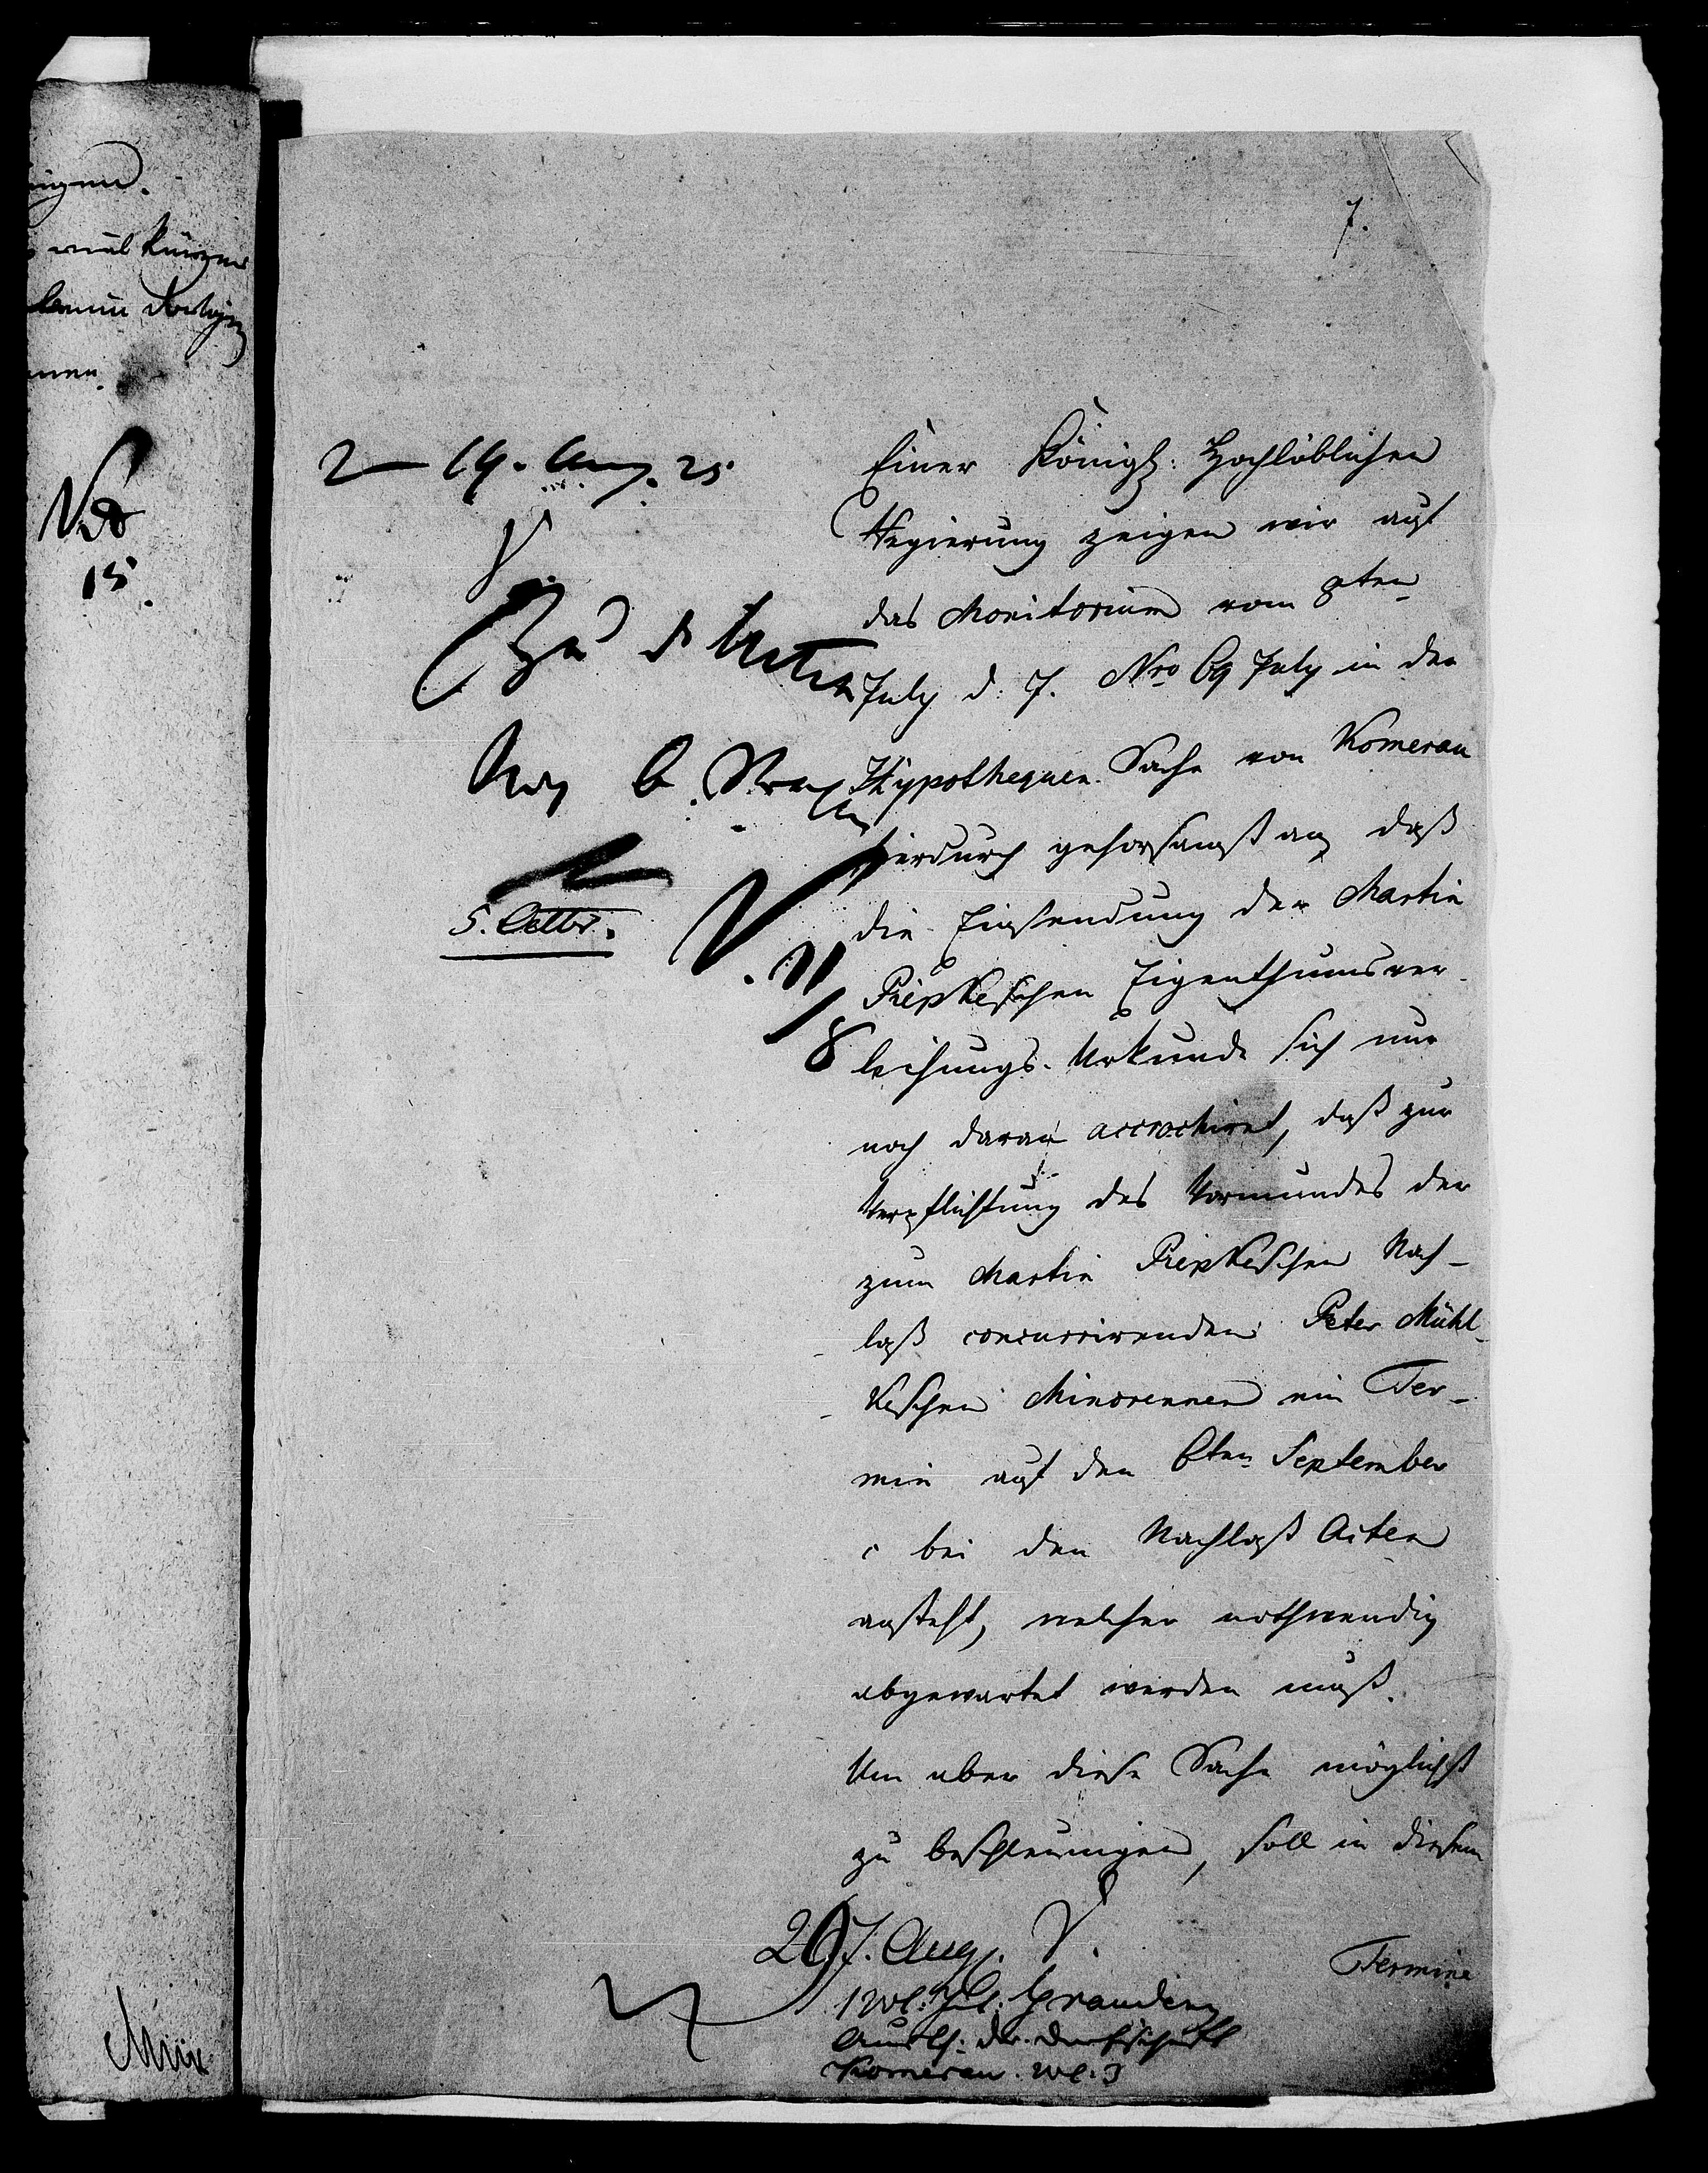 7.
2 – 19. Aug. 25
Zu d Acten
Nach 6. Wochen
5. Octbr.
V. 21/8
Einer Königl: Hochlöblichen
Regierung zeigen wir auf
das Monitorium vom 8ten
July d. J. Nro 69 July in der
Hypothequen-Sache von Komerau
hierdurch gehorsamst an, daß
die Einsendung der Martin
Piepkeschen Eigenthumsver-
leihungs-Urkunde sich nur
noch daran accrochiret, daß zur
Verpflichtung des Vormundes der
zum Martin Piepkeschen Nach-
laß concurrirenden Peter Mühl-
keschen Minorennen ein Ter-
min auf den 6ten September
c bei den Nachlaß Acten
ansteht, welcher nothwendig
abgewartet werden muß.
Um aber diese Sache möglichst
zu beschleunigen, soll in diesem
Termine
Aug.
Graudenz
der Dorfschaft
Komerau